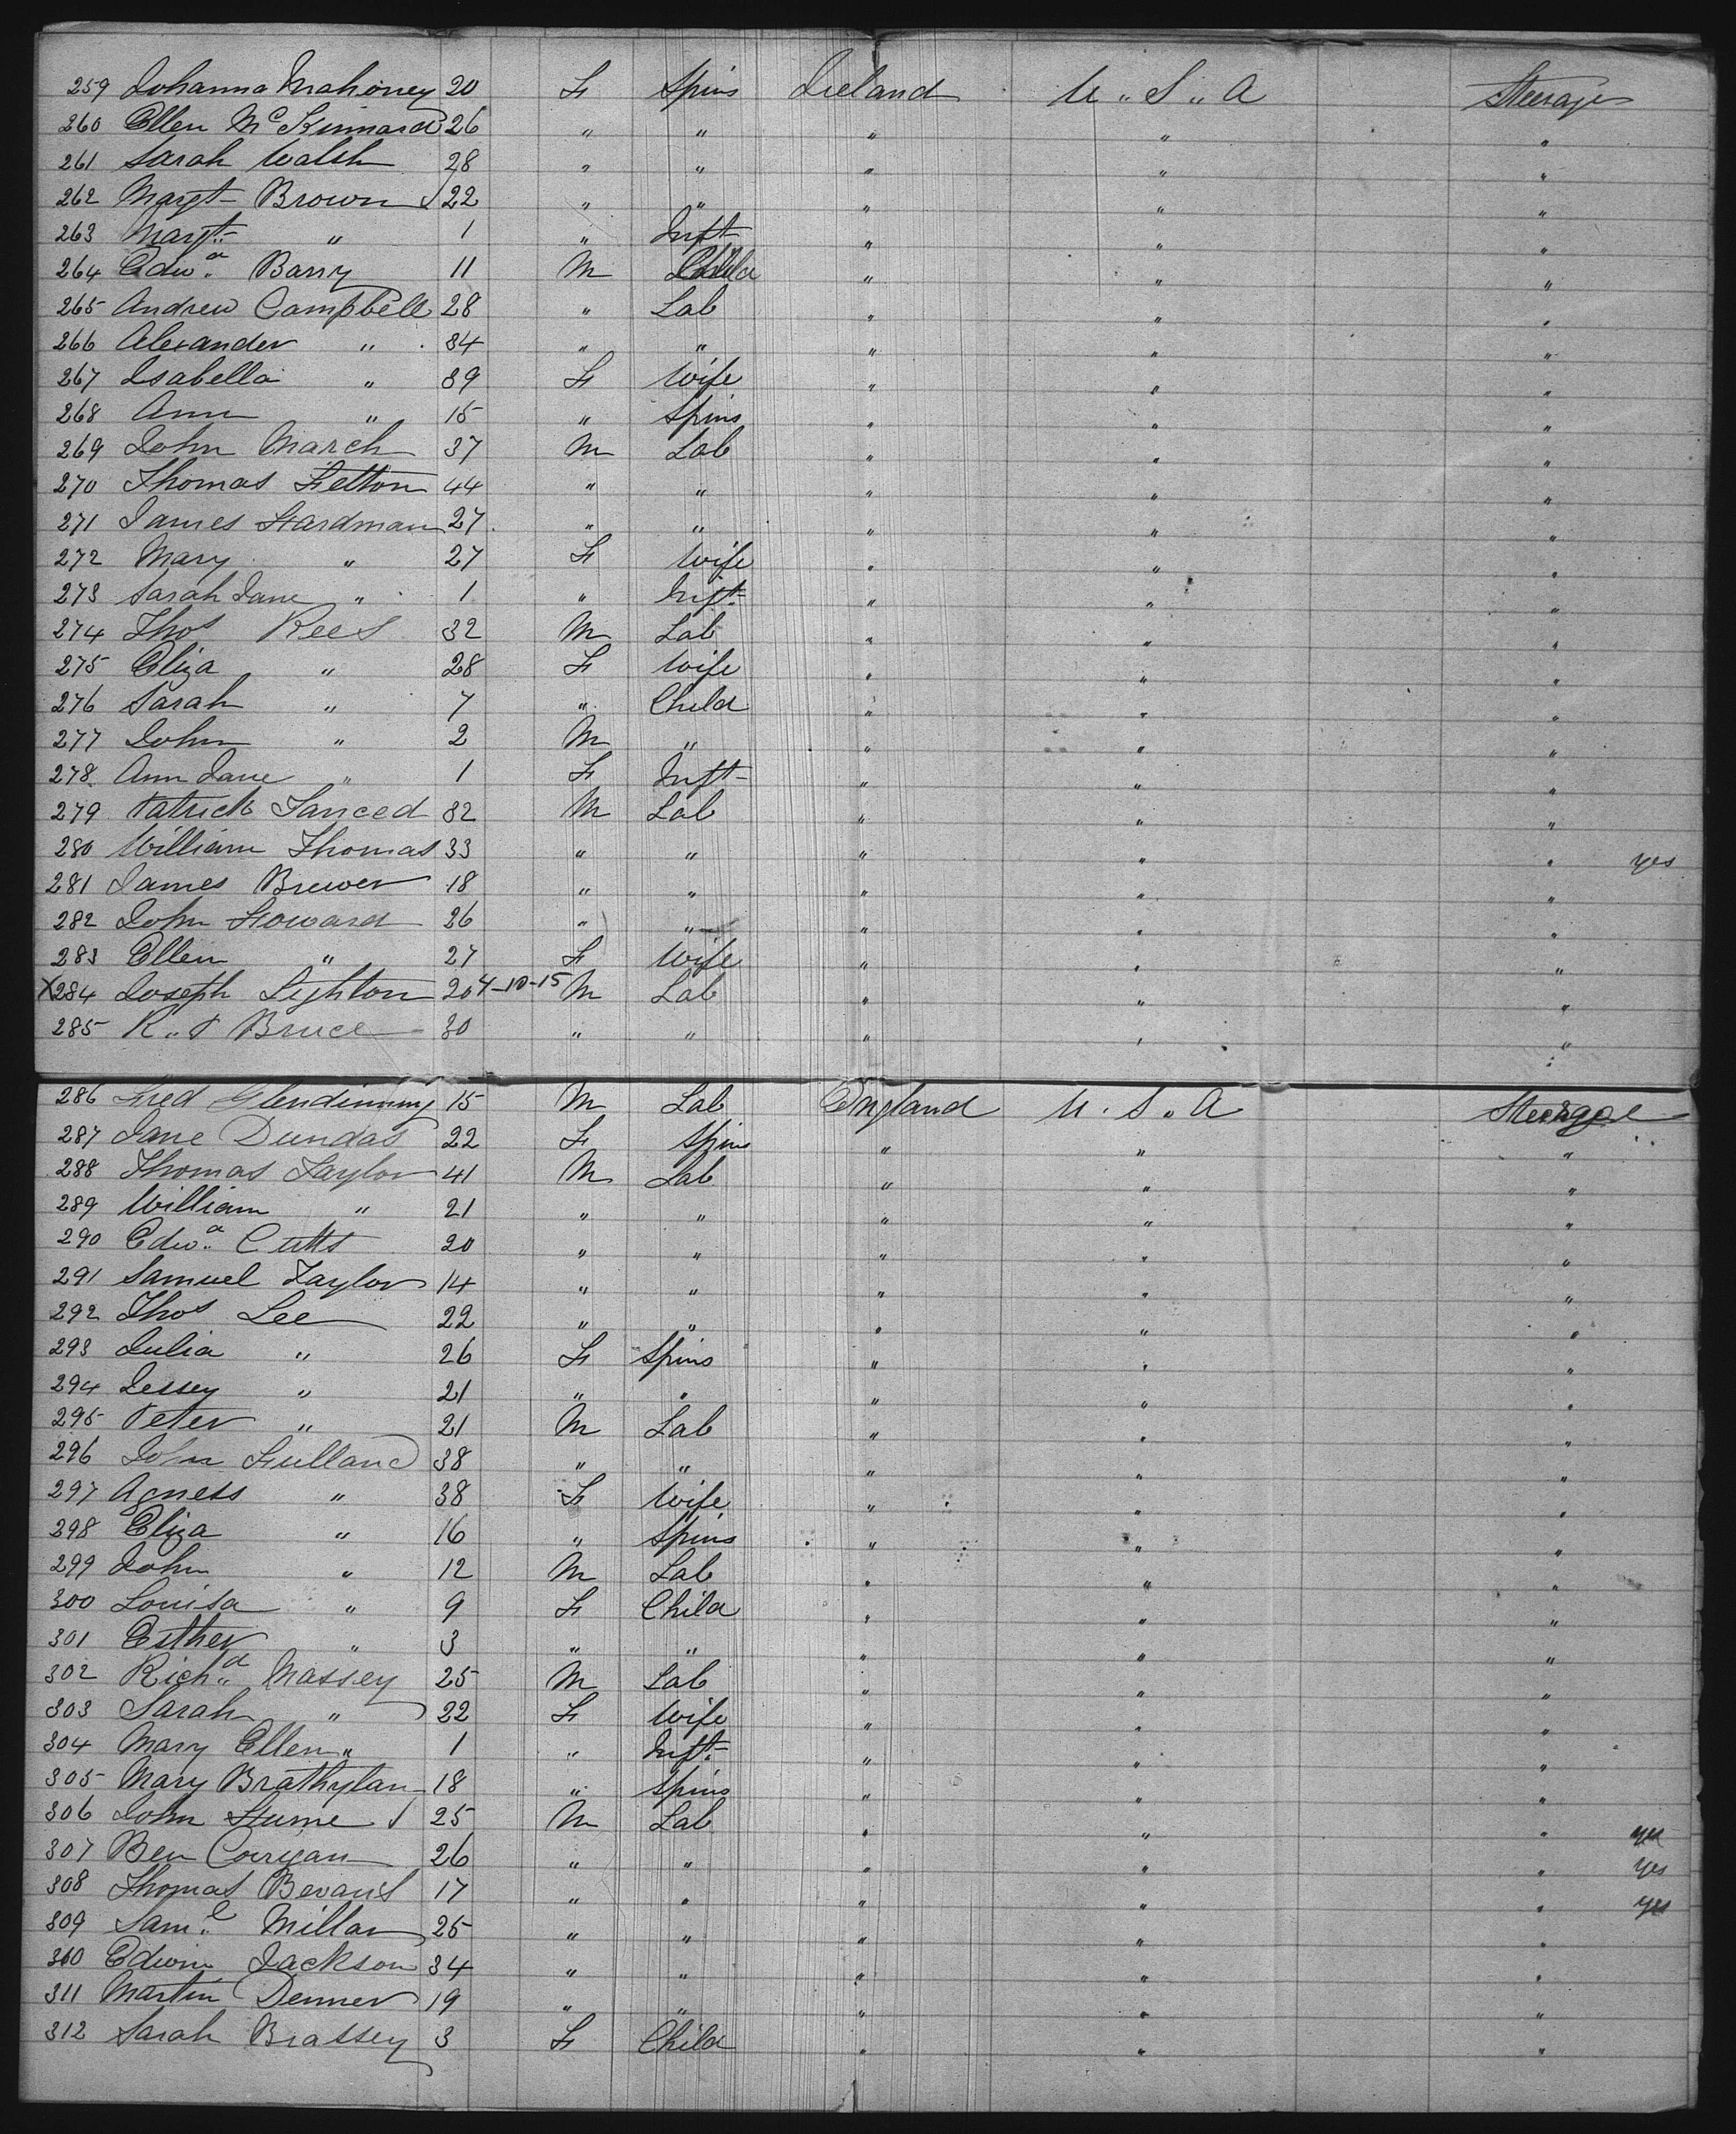 259 Johanna Mahoney 20 F Spins Ireland U.S.A Steerage
260 Ellen McKinnard 26 " " " " "
261 Sarah Walsh 28 " " " " "
262 Margt Brown 22 " " " " "
263 Margt " 1 " Inft " " "
264 Edwd Barry 11 M Child " " "
265 Andrew Campbell 28 " Lab " " "
266 Alexander " 34 " " " " "
267 Isabella " 39 F Wife " " "
268 Ann " 15 " Spins " " "
269 John March 37 M Lab " " "
270 Thomas Felton 44 " " " " "
271 James Hardman 27 " " " " "
272 Mary " 27 F Wife " " "
273 Sarah Jane " 1 " Inft " " "
274 Thos Rees 32 M Lab " " "
275 Eliza " 28 F Wife " " "
276 Sarah " 7 " Child " " "
277 John " 2 M " " " "
278 Ann Jane " 1 F Inft " " "
279 Patrick 32 M Lab " " "
280 William Thomas 33 " " " " " yes
281 James Brewer 18 " " " " "
282 John Howard 26 " " " " "
283 Ellen " 27 F Wife " " "
X284 Joseph Lighton 20 4-10-15 M Lab " " "
285 R.. Bruce 30 " " " " "
286 Fred Glendinning 15 M Lab England U.S.A Steerage
287 Jane Dundas 22 F Spins " " "
288 Thomas Taylor 41 M Lab " " "
289 William " 21 " " " " "
290 Edwd Cutts 20 " " " " "
291 Samuel Taylor 14 " " " " "
292 Thos Lee 22 " " " " "
293 Julia " 26 F Spins " " "
294 Jessey " 21 " " " " "
295 Peter " 21 M Lab " " "
296 John Hulland 38 " " " " "
297 Agness " 38 F Wife " " "
298 Eliza " 16 " Spins " " "
299 John " 12 M Lab " " "
300 Louisa " 9 F Child " " "
301 Esther " 3 " " " " "
302 Richd Massey 25 M Lab " " "
303 Sarah " 22 F Wife " " "
304 Mary Ellen " 1 " Inft " " "
305 Mary 18 " Spins " " "
306 John Hume 25 M Lab " " " yes
307 Ben Corrgan 26 " " " " " yes
308 Thomas Bevans 17 " " " " " yes
309 Saml Millar 25 " " " " "
310 Edwin Jackson 34 " " " " "
311 Martin Denner 19 " " " " "
312 Sarah Brassey 3 F Child " " "